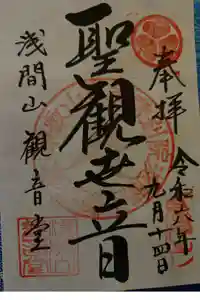 奉拝
令和六年
九月十四日
聖觀世音
浅間山觀音堂